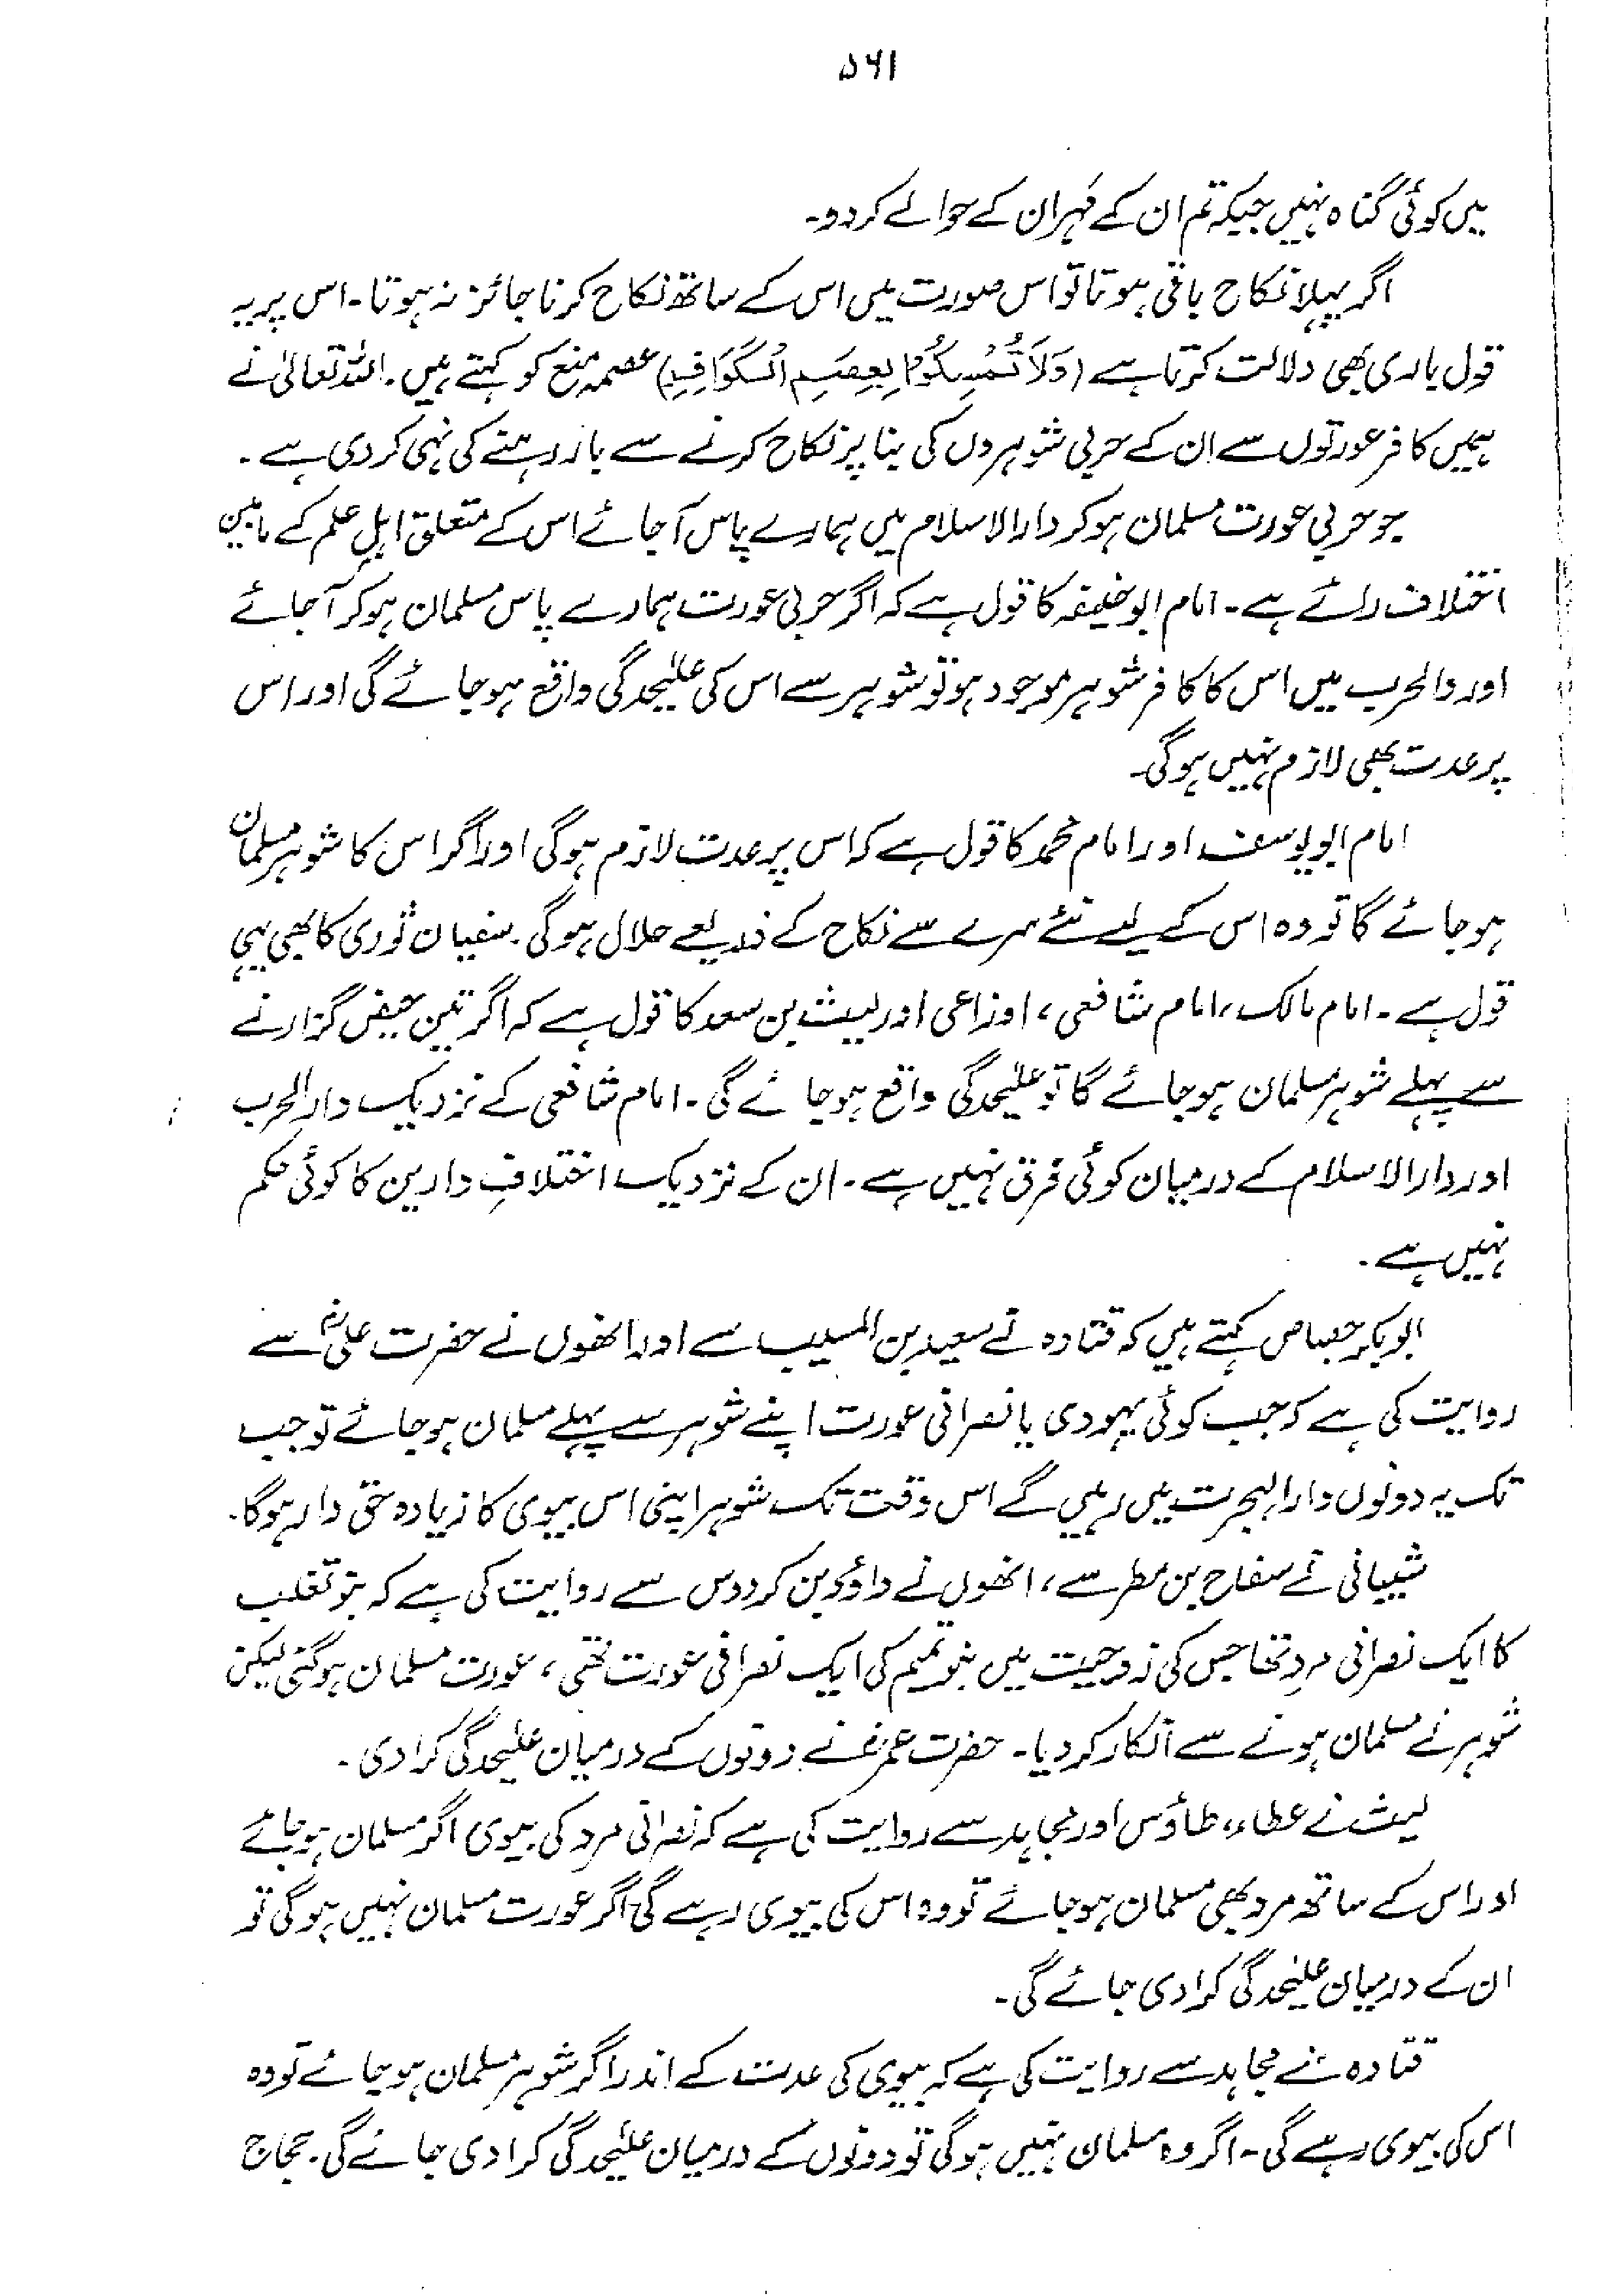 ۵۶۱
میں کوئی گناہ نہیں جبکہ تم ان کے مہران کے حوالے کر دو۔
اگر پہلا نکاح باقی ہوتا تو اس صورت میں اس کے ساتھ نکاح کرنا جائز نہ ہوتا۔ اس پر یہ
قول باری بھی دلالت کرتا ہے (وَلَا تُمْسِكُوْا بِعِصَمِ الْكَوَافِرِ) عصمہ منع کو کہتے ہیں۔ اللہ تعالیٰ نے
ہمیں کافر عورتوں سے ان کے حربی شوہروں کی بنا پر نکاح کرنے سے باز رہنے کی نہی کر دی ہے۔
جو حربی عورت مسلمان ہو کر دارالاسلام میں ہمارے پاس آجائے اس کے متعلق اہل علم کے مابین
اختلاف رائے ہے۔ امام ابوحنیفہ کا قول ہے کہ اگر حربی عورت ہمارے پاس مسلمان ہو کر آجائے
اور دالحرب میں اس کا کافر شوہر موجود ہو تو شوہر سے اس کی علیٰحدگی واقع ہو جائے گی اور اس
پر عدت بھی لازم نہیں ہوگی۔
امام ابویوسف اور امام محمد کا قول ہے کہ اس پر عدت لازم ہوگی اور اگر اس کا شوہر مسلمان
ہو جائے گا تو وہ اس کے لیے نئے سرے سے نکاح کے ذریعے حلال ہوگی۔ سفیان ثوری کا بھی یہی
قول ہے۔ امام مالک، امام شافعی، اوزاعی اور لیث بن سعد کا قول ہے کہ اگر تین حیض گزارنے
سے پہلے شوہر مسلمان ہو جائے گا تو علیٰحدگی واقع ہو جائے گی۔ امام شافعی کے نزدیک دارالحرب
اور دارالاسلام کے درمیان کوئی فرق نہیں ہے۔ ان کے نزدیک اختلافِ دارین کا کوئی حکم
نہیں ہے۔
ابوبکر جصاص کہتے ہیں کہ قتادہ نے سعید بن المسیب سے اور انھوں نے حضرت علیؓ سے
روایت کی ہے کہ جب کوئی یہودی یا نصرانی عورت اپنے شوہر سے پہلے مسلمان ہو جائے تو جب
تک یہ دونوں دارالہجرت میں رہیں گے اس وقت تک شوہر اپنی اس بیوی کا زیادہ حق دار ہوگا۔
شیبانی نے سفاح بن مطر سے، انھوں نے داؤد بن کردوس سے روایت کی ہے کہ بنو تغلب
کا ایک نصرانی مرد تھا جس کی زوجیت میں بنو تمیم کی ایک نصرانی عورت تھی، عورت مسلمان ہو گئی لیکن
شوہر نے مسلمان ہونے سے انکار کر دیا۔ حضرت عمرؓ نے دونوں کے درمیان علیٰحدگی کرا دی۔
لیث نے عطاء، طاؤس اور مجاہد سے روایت کی ہے کہ نصرانی مرد کی بیوی اگر مسلمان ہو جائے
اور اس کے ساتھ مرد بھی مسلمان ہو جائے تو وہ اس کی بیوی رہے گی اگر عورت مسلمان نہیں ہوگی تو
ان کے درمیان علیٰحدگی کرا دی جائے گی۔
قتادہ نے مجاہد سے روایت کی ہے کہ بیوی کی عدت کے اندر اگر شوہر مسلمان ہو جائے تو وہ
اس کی بیوی رہے گی۔ اگر وہ مسلمان نہیں ہوگی تو دونوں کے درمیان علیٰحدگی کرا دی جائے گی۔ حجاج